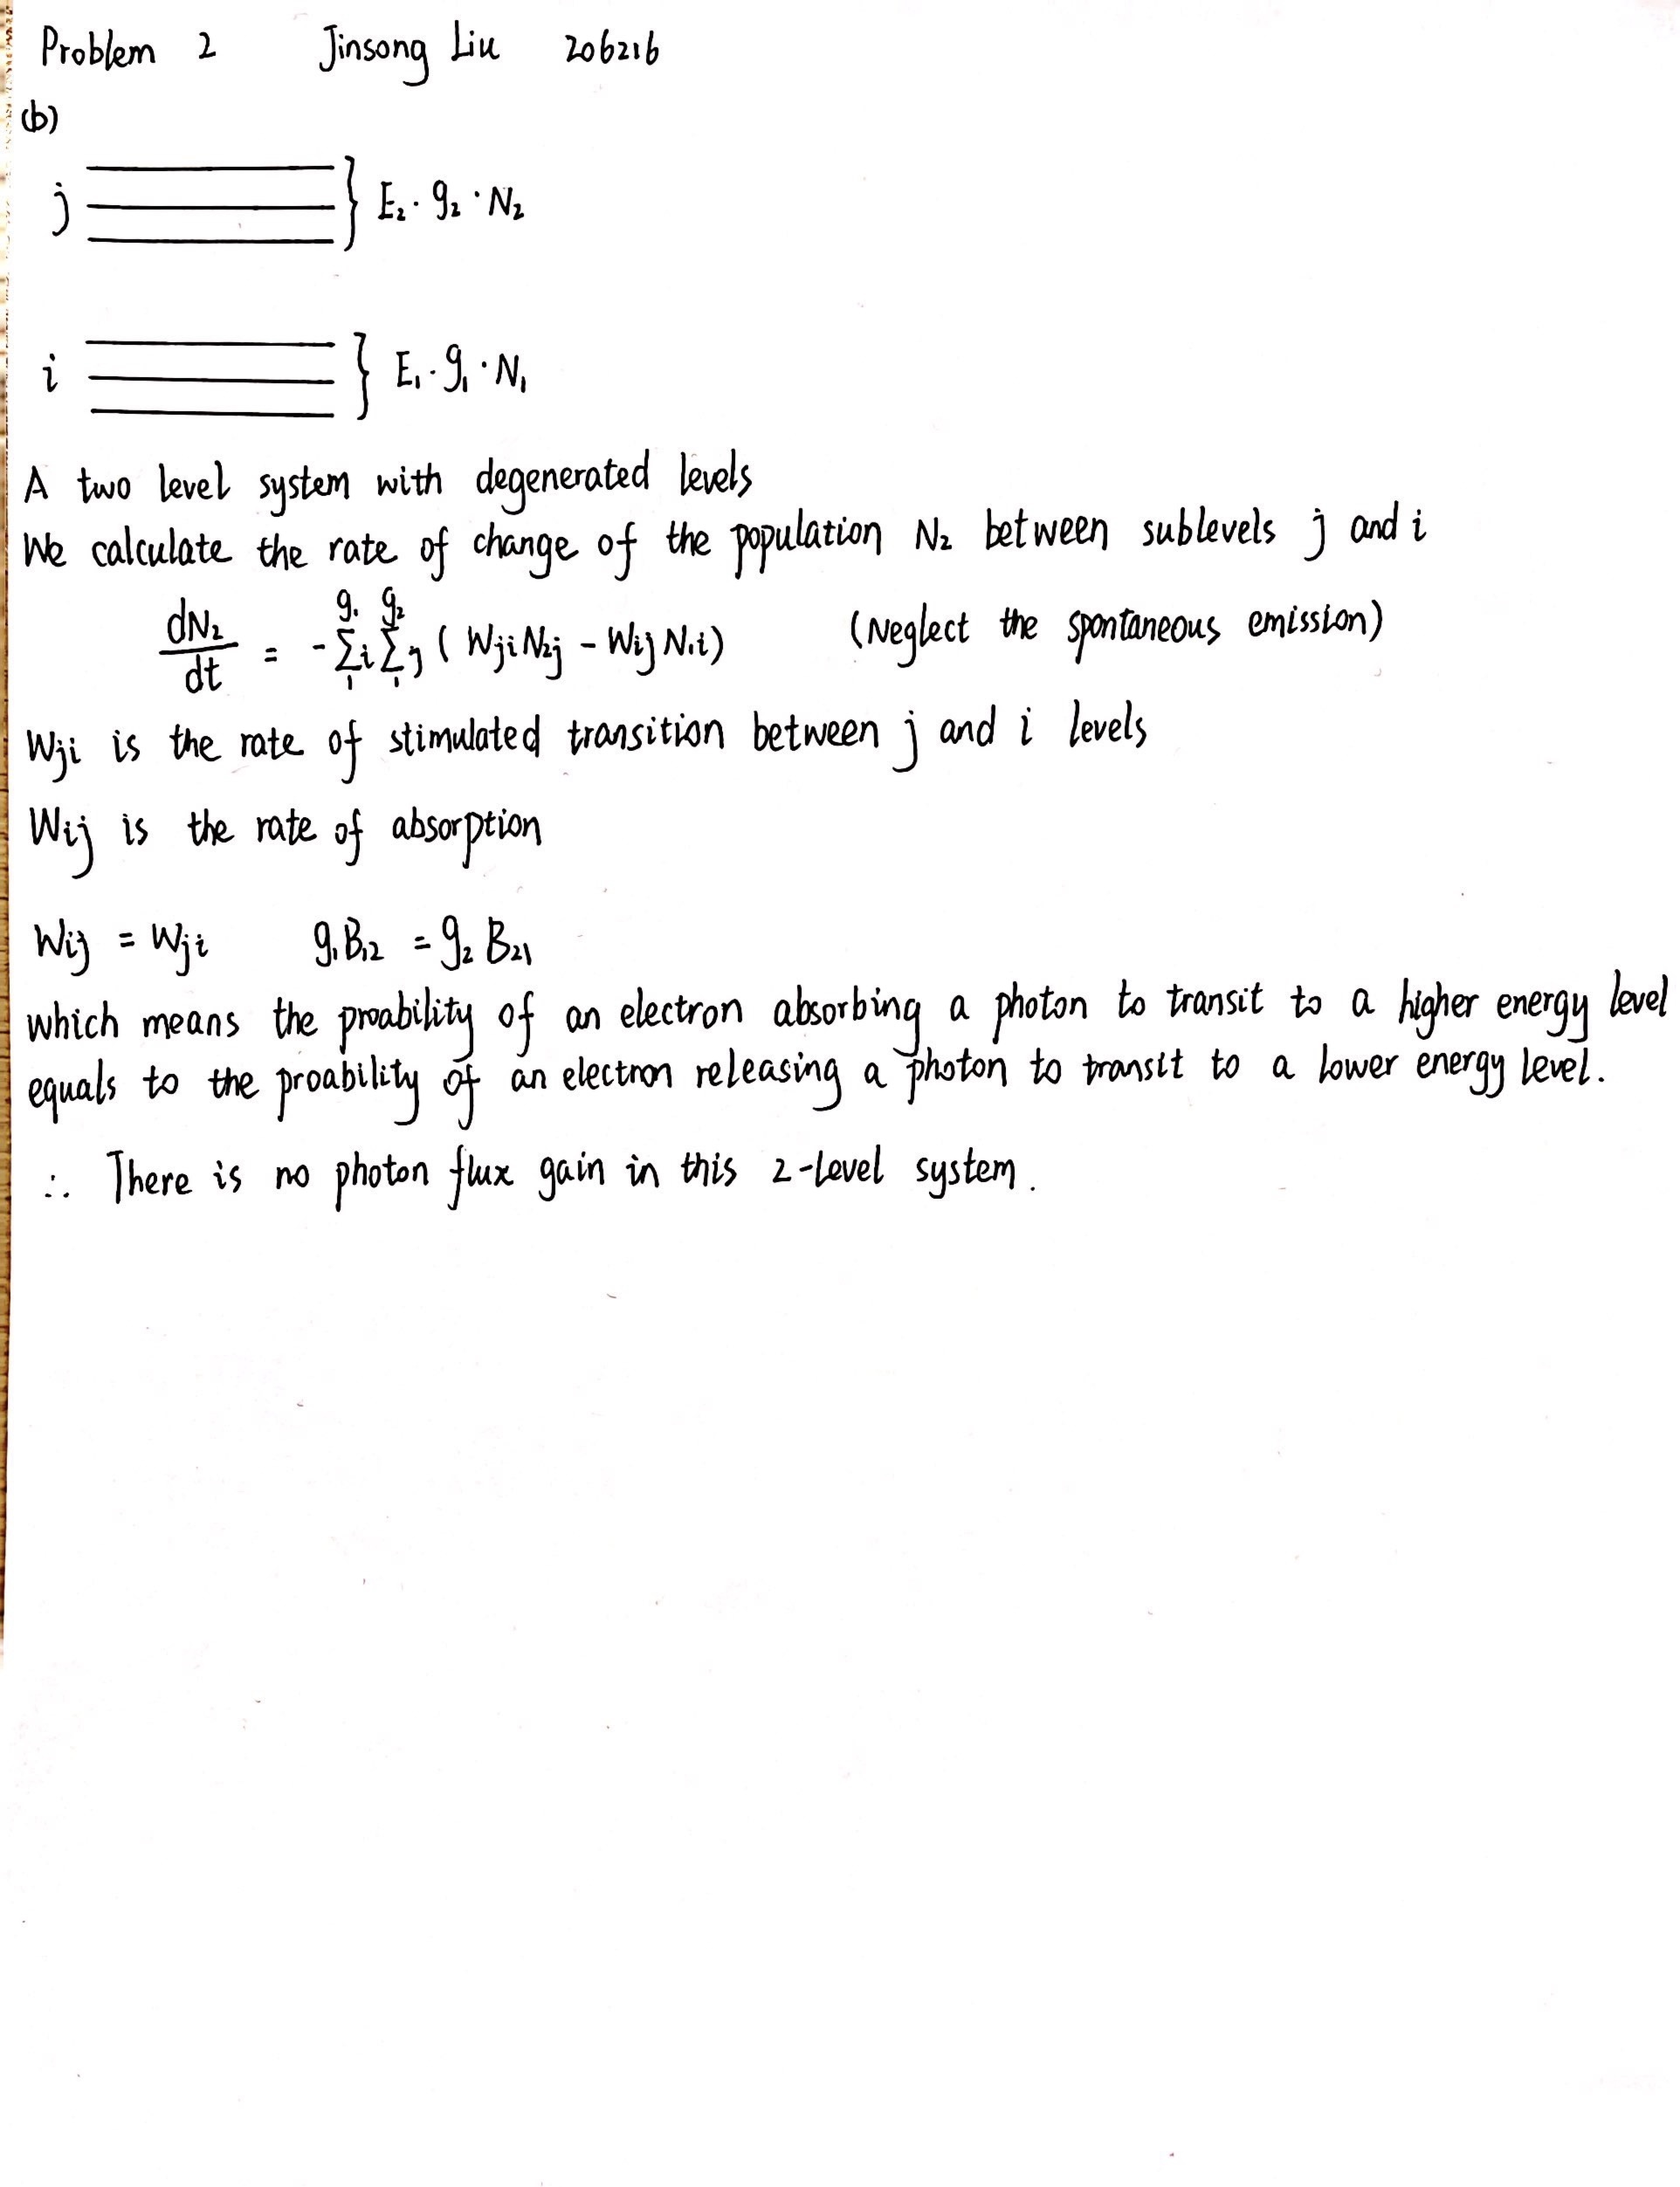 Problem 2 Jinsong Liu 206216
(b)
j } E₂ · g₂ · N₂
i } E₁ · g₁ · N₁
A two level system with degenerated levels
We calculate the rate of change of the population N₂ between sublevels j and i
dN₂/dt = - Σᵢ₁^g₁ Σⱼ₁^g₂ ( Wji N₂j - Wij N₁i) (Neglect the spontaneous emission)
Wji is the rate of stimulated transition between j and i levels
Wij is the rate of absorption
Wij = Wji g₁B₁₂ = g₂ B₂₁
which means the proability of an electron absorbing a photon to transit to a higher energy level
equals to the proability of an electron releasing a photon to transit to a lower energy level.
∴ There is no photon flux gain in this 2-level system.